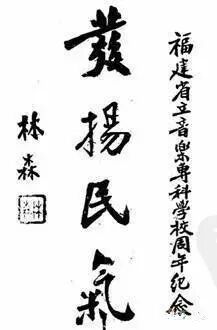 福建省立音樂專科學校周年纪念
發揚民氣
林森